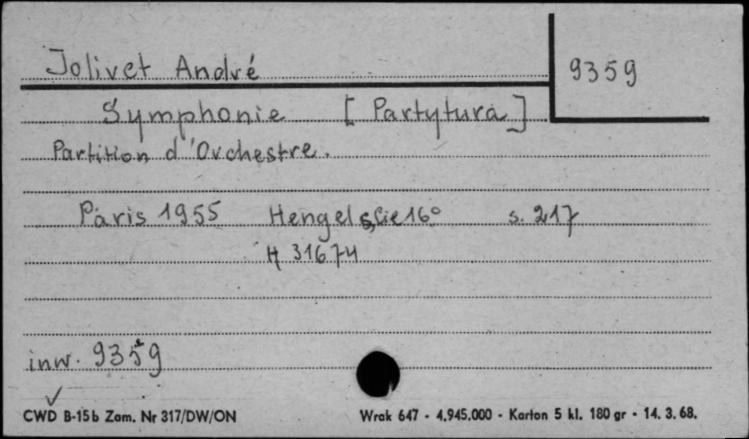 Jolivet André
9359
Symphonie [Partytura]
Partition d'Orchestre.
Paris 1955 Hengel &Cie 16° s. 217
H 31674
inw. 9359
CWD B-15b Zam. Nr 317/DW/ON
Wrak 647 - 4.945.000 - Karton 5 kl. 180 gr - 14. 3. 68.